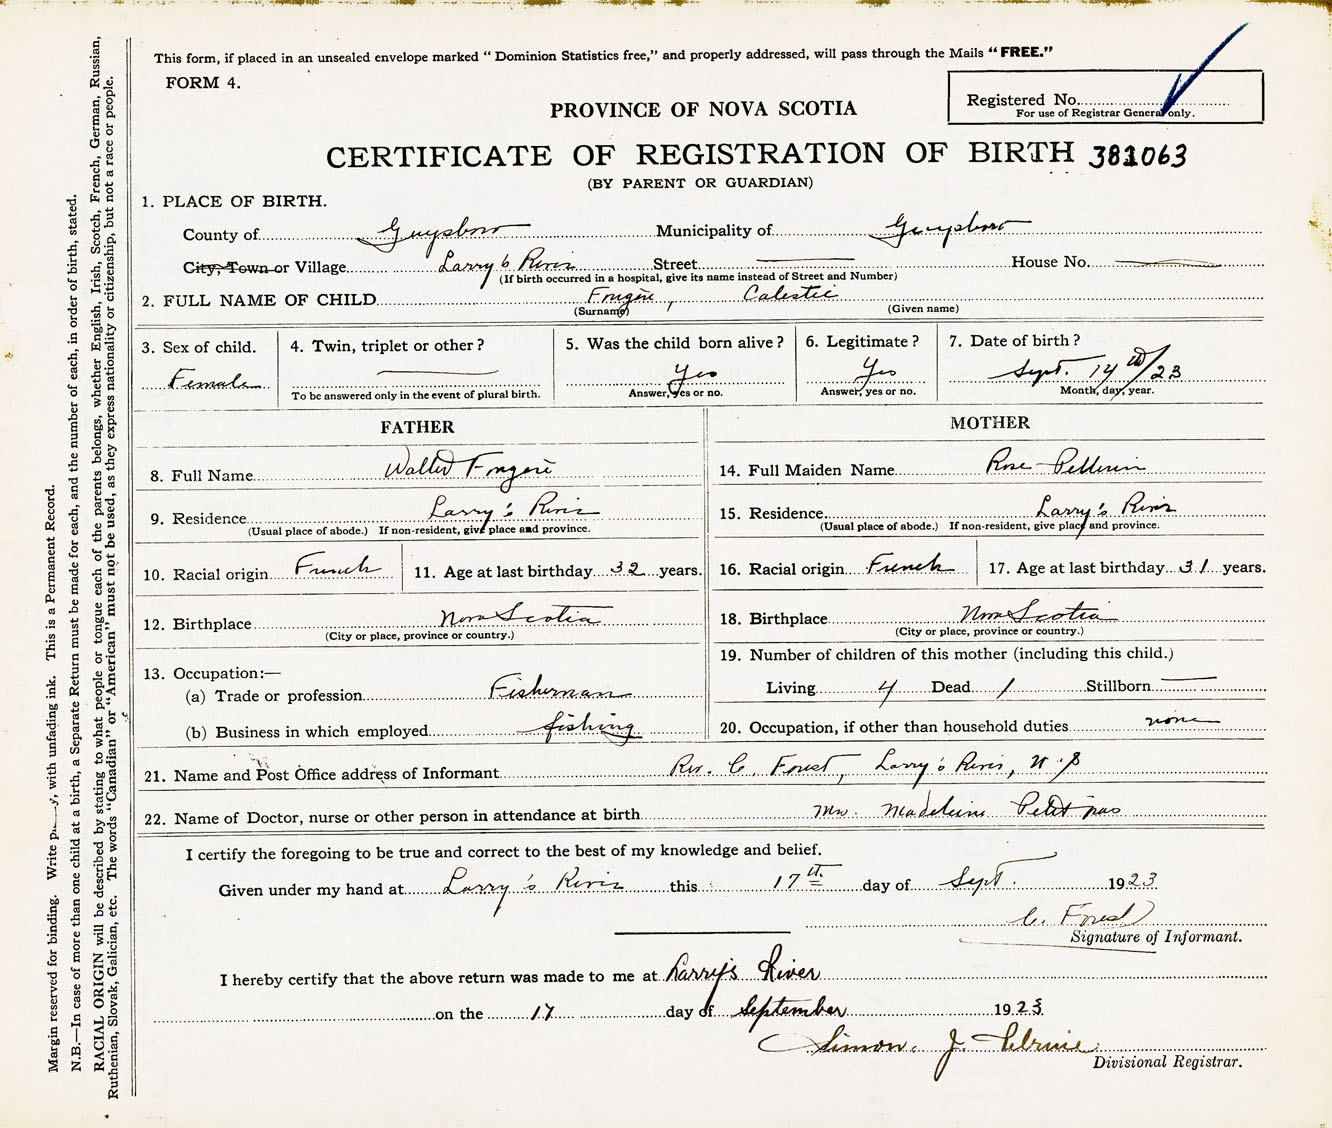 This form, if placed in an unsealed envelope marked “ Dominion Statistics free,” and properly addressed, will pass through the Mails “ FREE.”
FORM 4.
Registered No.
For use of Registrar General only.
PROVINCE OF NOVA SCOTIA
CERTIFICATE OF REGISTRATION OF BIRTH 381063
(BY PARENT OR GUARDIAN)
1. PLACE OF BIRTH.
County of Guysboro Municipality of Guysboro
City, Town or Village Larry's River Street House No.
(If birth occurred in a hospital, give its name instead of Street and Number)
2. FULL NAME OF CHILD Fougère, Calestie
(Surname) (Given name)
3. Sex of child. 4. Twin, triplet or other ? 5. Was the child born alive ? 6. Legitimate ? 7. Date of birth ?
Female Yes Yes Sept. 14th/23
To be answered only in the event of plural birth. Answer, yes or no. Answer, yes or no. Month, day, year.
FATHER
8. Full Name Walter Fougère
9. Residence Larry's River
(Usual place of abode.) If non-resident, give place and province.
10. Racial origin French 11. Age at last birthday 32 years.
12. Birthplace Nova Scotia
(City or place, province or country.)
13. Occupation:—
(a) Trade or profession Fisherman
(b) Business in which employed fishing
MOTHER
14. Full Maiden Name Rose Pellerin
15. Residence Larry's River
(Usual place of abode.) If non-resident, give place and province.
16. Racial origin French 17. Age at last birthday 31 years.
18. Birthplace Nova Scotia
(City or place, province or country.)
19. Number of children of this mother (including this child.)
Living 4 Dead 1 Stillborn
20. Occupation, if other than household duties none
21. Name and Post Office address of Informant Rev. C. Forest, Larry's River, N.S
22. Name of Doctor, nurse or other person in attendance at birth Mrs. Madeleine Petitpas
I certify the foregoing to be true and correct to the best of my knowledge and belief.
Given under my hand at Larry's River this 17th day of Sept. 1923
C. Forest
Signature of Informant.
I hereby certify that the above return was made to me at Larry's River
on the 17 day of September 1923
Simon. J.
Divisional Registrar.
Margin reserved for binding. Write y, with unfading ink. This is a Permanent Record.
N.B.—In case of more than one child at a birth, a Separate Return must be made for each, and the number of each, in order of birth, stated.
RACIAL ORIGIN will be described by stating to what people or tongue each of the parents belongs, whether English, Irish, Scotch, French, German, Russian,
Ruthenian, Slovak, Galician, etc. The words “Canadian” or “American” must not be used, as they express nationality or citizenship, but not a race or people.